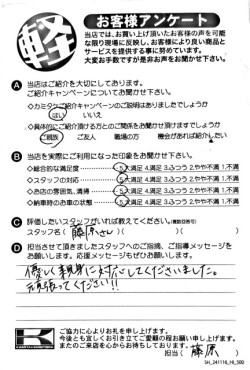 軽
お客様アンケート
当店では、お買い上げ頂いたお客様の声を可能
な限り現場に反映し、お客様により良い商品と
サービスを提供する事に努めています。
大変お手数ですが是非お声をお聞かせ下さい。
A 当店はご紹介を大切にしております。
ご紹介キャンペーンについてお聞かせ下さい。
◇カミタケご紹介キャンペーンのご説明はありましたでしょうか
はい いいえ
◇具体的にご紹介頂ける方とのご関係をお聞かせ頂けますでしょうか
ご親族 ご友人 職場の方 機会があれば紹介したい
B 当店を実際にご利用になった印象をお聞かせ下さい。
◇総合的な満足度 5.大満足 4.満足 3.ふつう 2.やや不満 1.不満
◇スタッフの対応 5.大満足 4.満足 3.ふつう 2.やや不満 1.不満
◇お店の雰囲気、清掃 5.大満足 4.満足 3.ふつう 2.やや不満 1.不満
◇納車時のお車の状態 5.大満足 4.満足 3.ふつう 2.やや不満 1.不満
C 評価したいスタッフがいれば教えてください。(複数回答可)
スタッフ名( 藤原さん )( )( )
D 担当させて頂きましたスタッフへのご指摘、ご指導メッセージを
お願いします。応援メッセージもぜひお願いします。
優しく親身に対応してくださいました。
頑張ってください!!
K
ご協力に心よりお礼を申し上げます。
今後とも宜しくお引き立てご愛顧の程お願い申し上げます。
またのご来店を心からお待ちしております。
担当( 藤原 )
SH_241116_HI_500